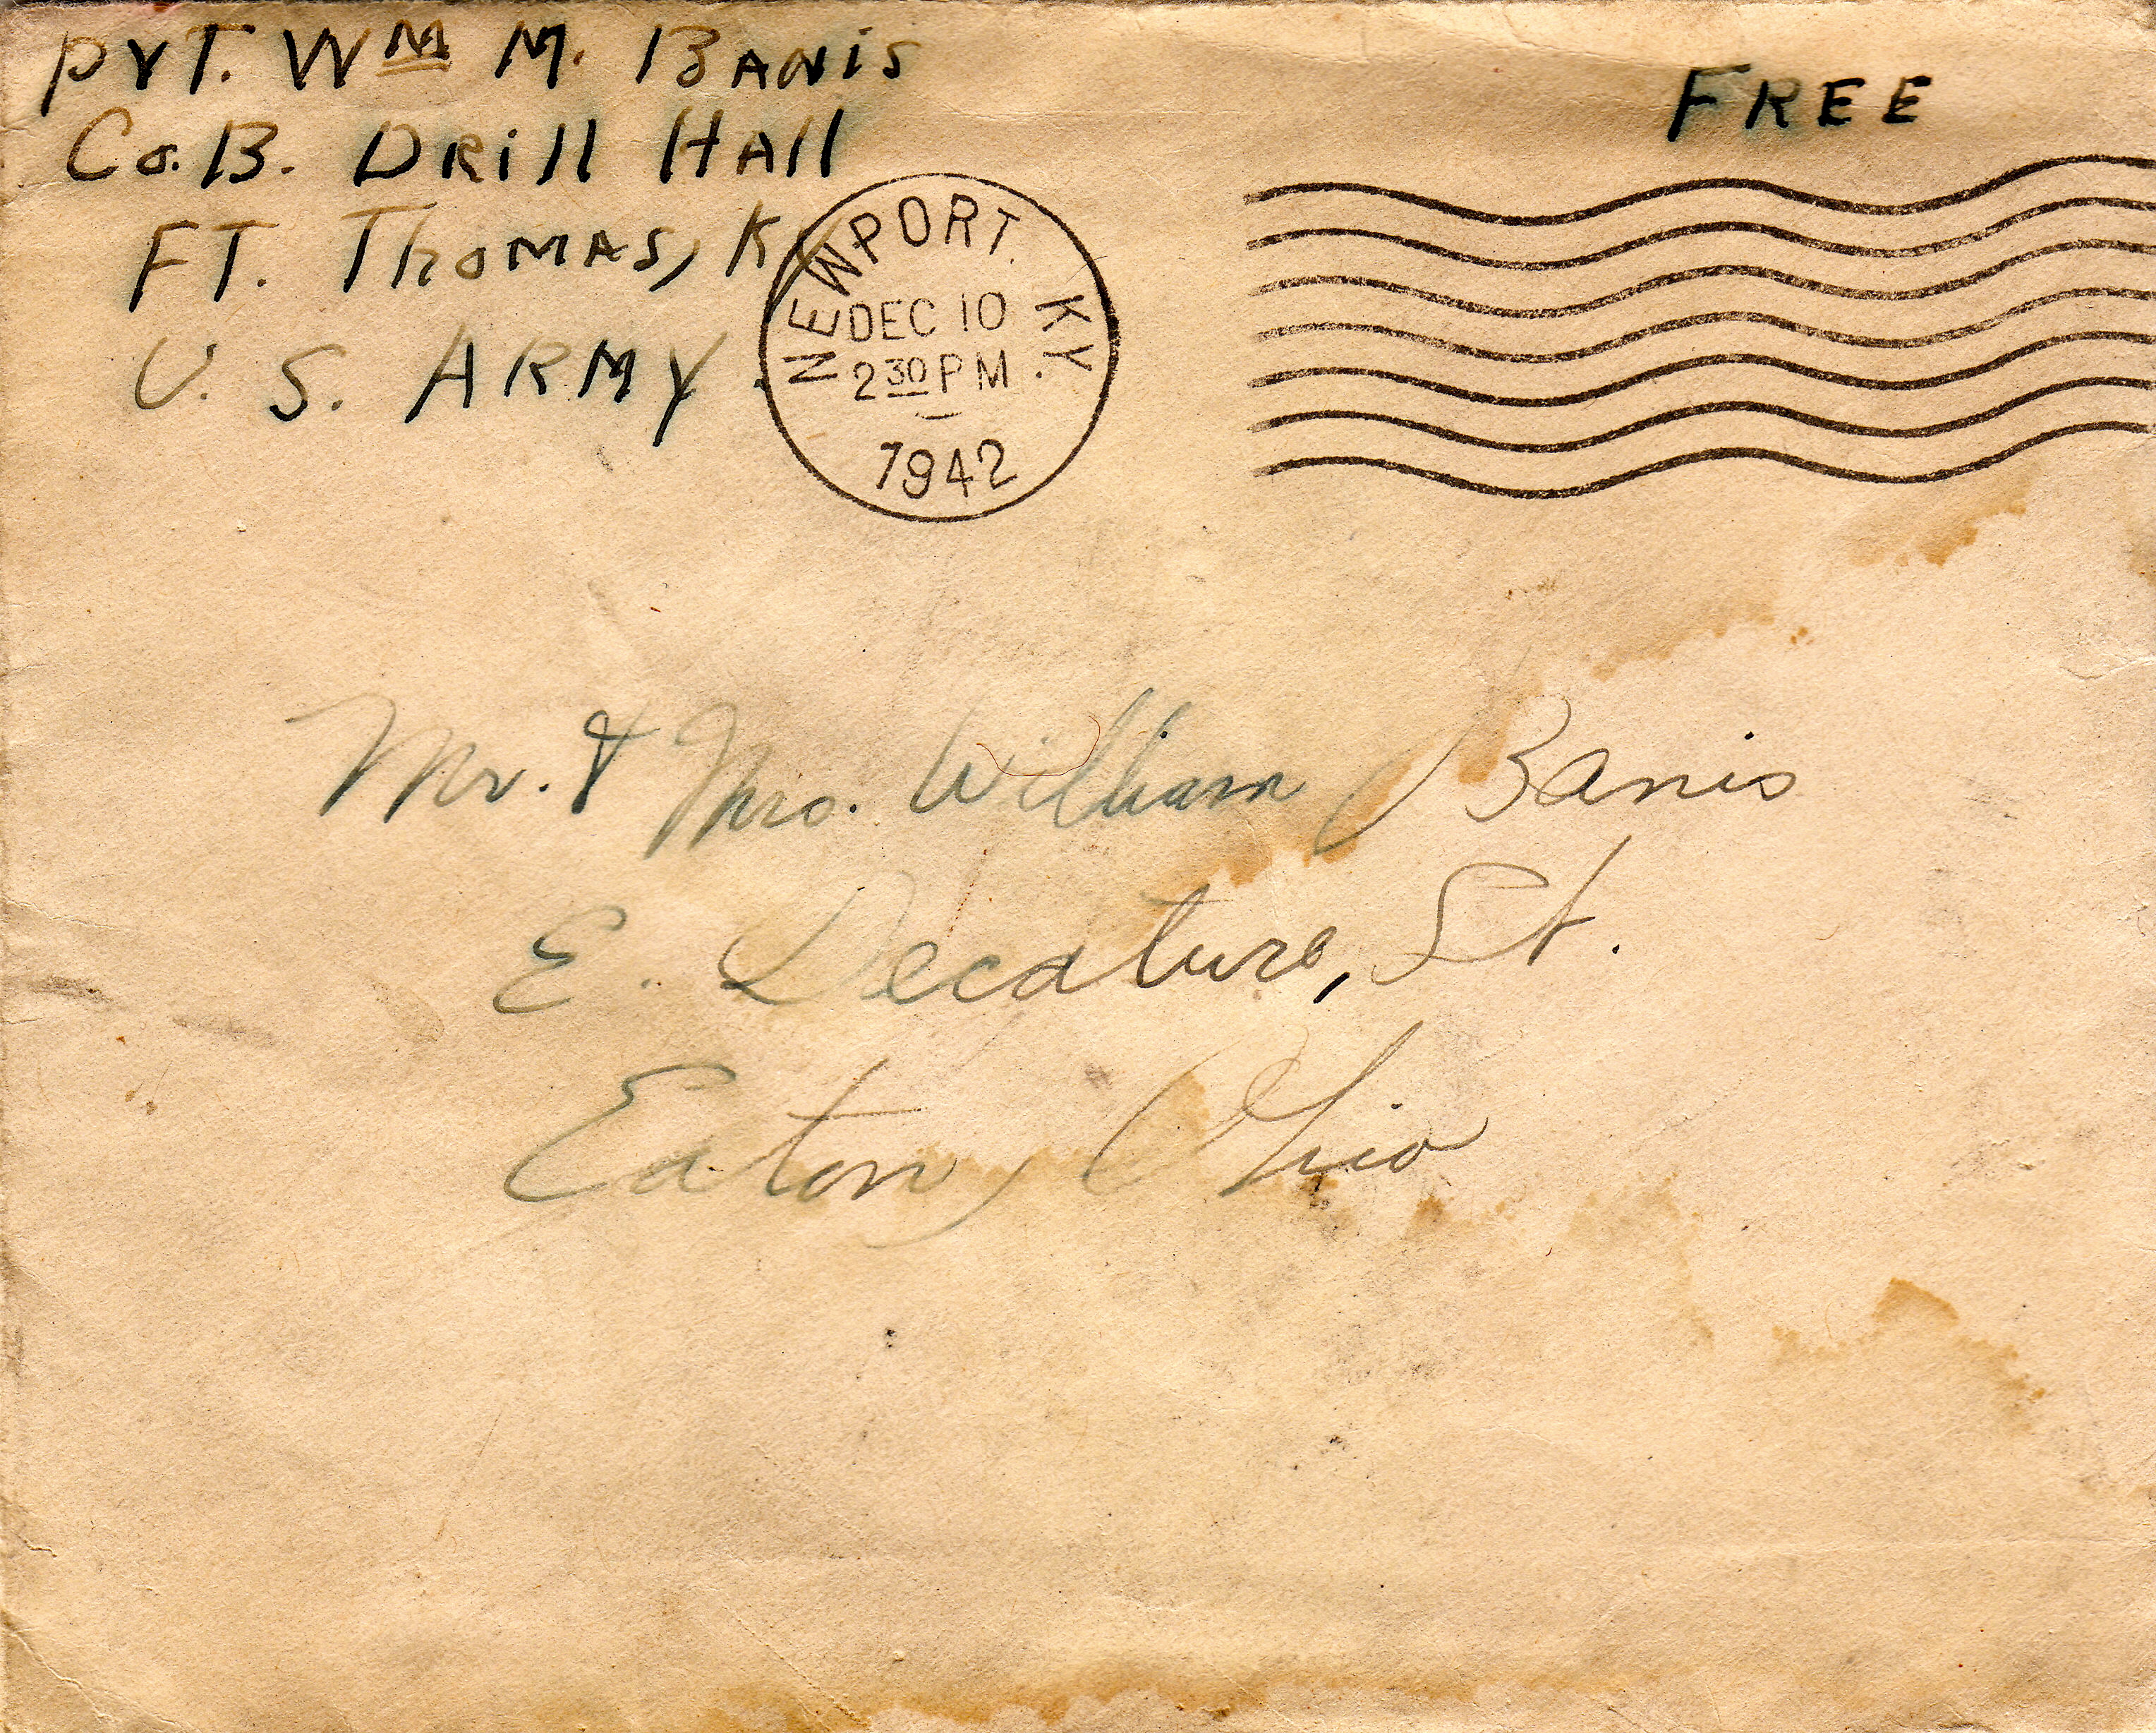 PVT. Wᴹ M. BANIS
Co. B. DRill HAll
FT. THOMAS, Ky
U. S. ARMY.
FREE
NEWPORT. KY.
DEC 10
2 30 PM
1942
Mr. & Mrs. William Banis
E. Decature, St.
Eaton, Ohio